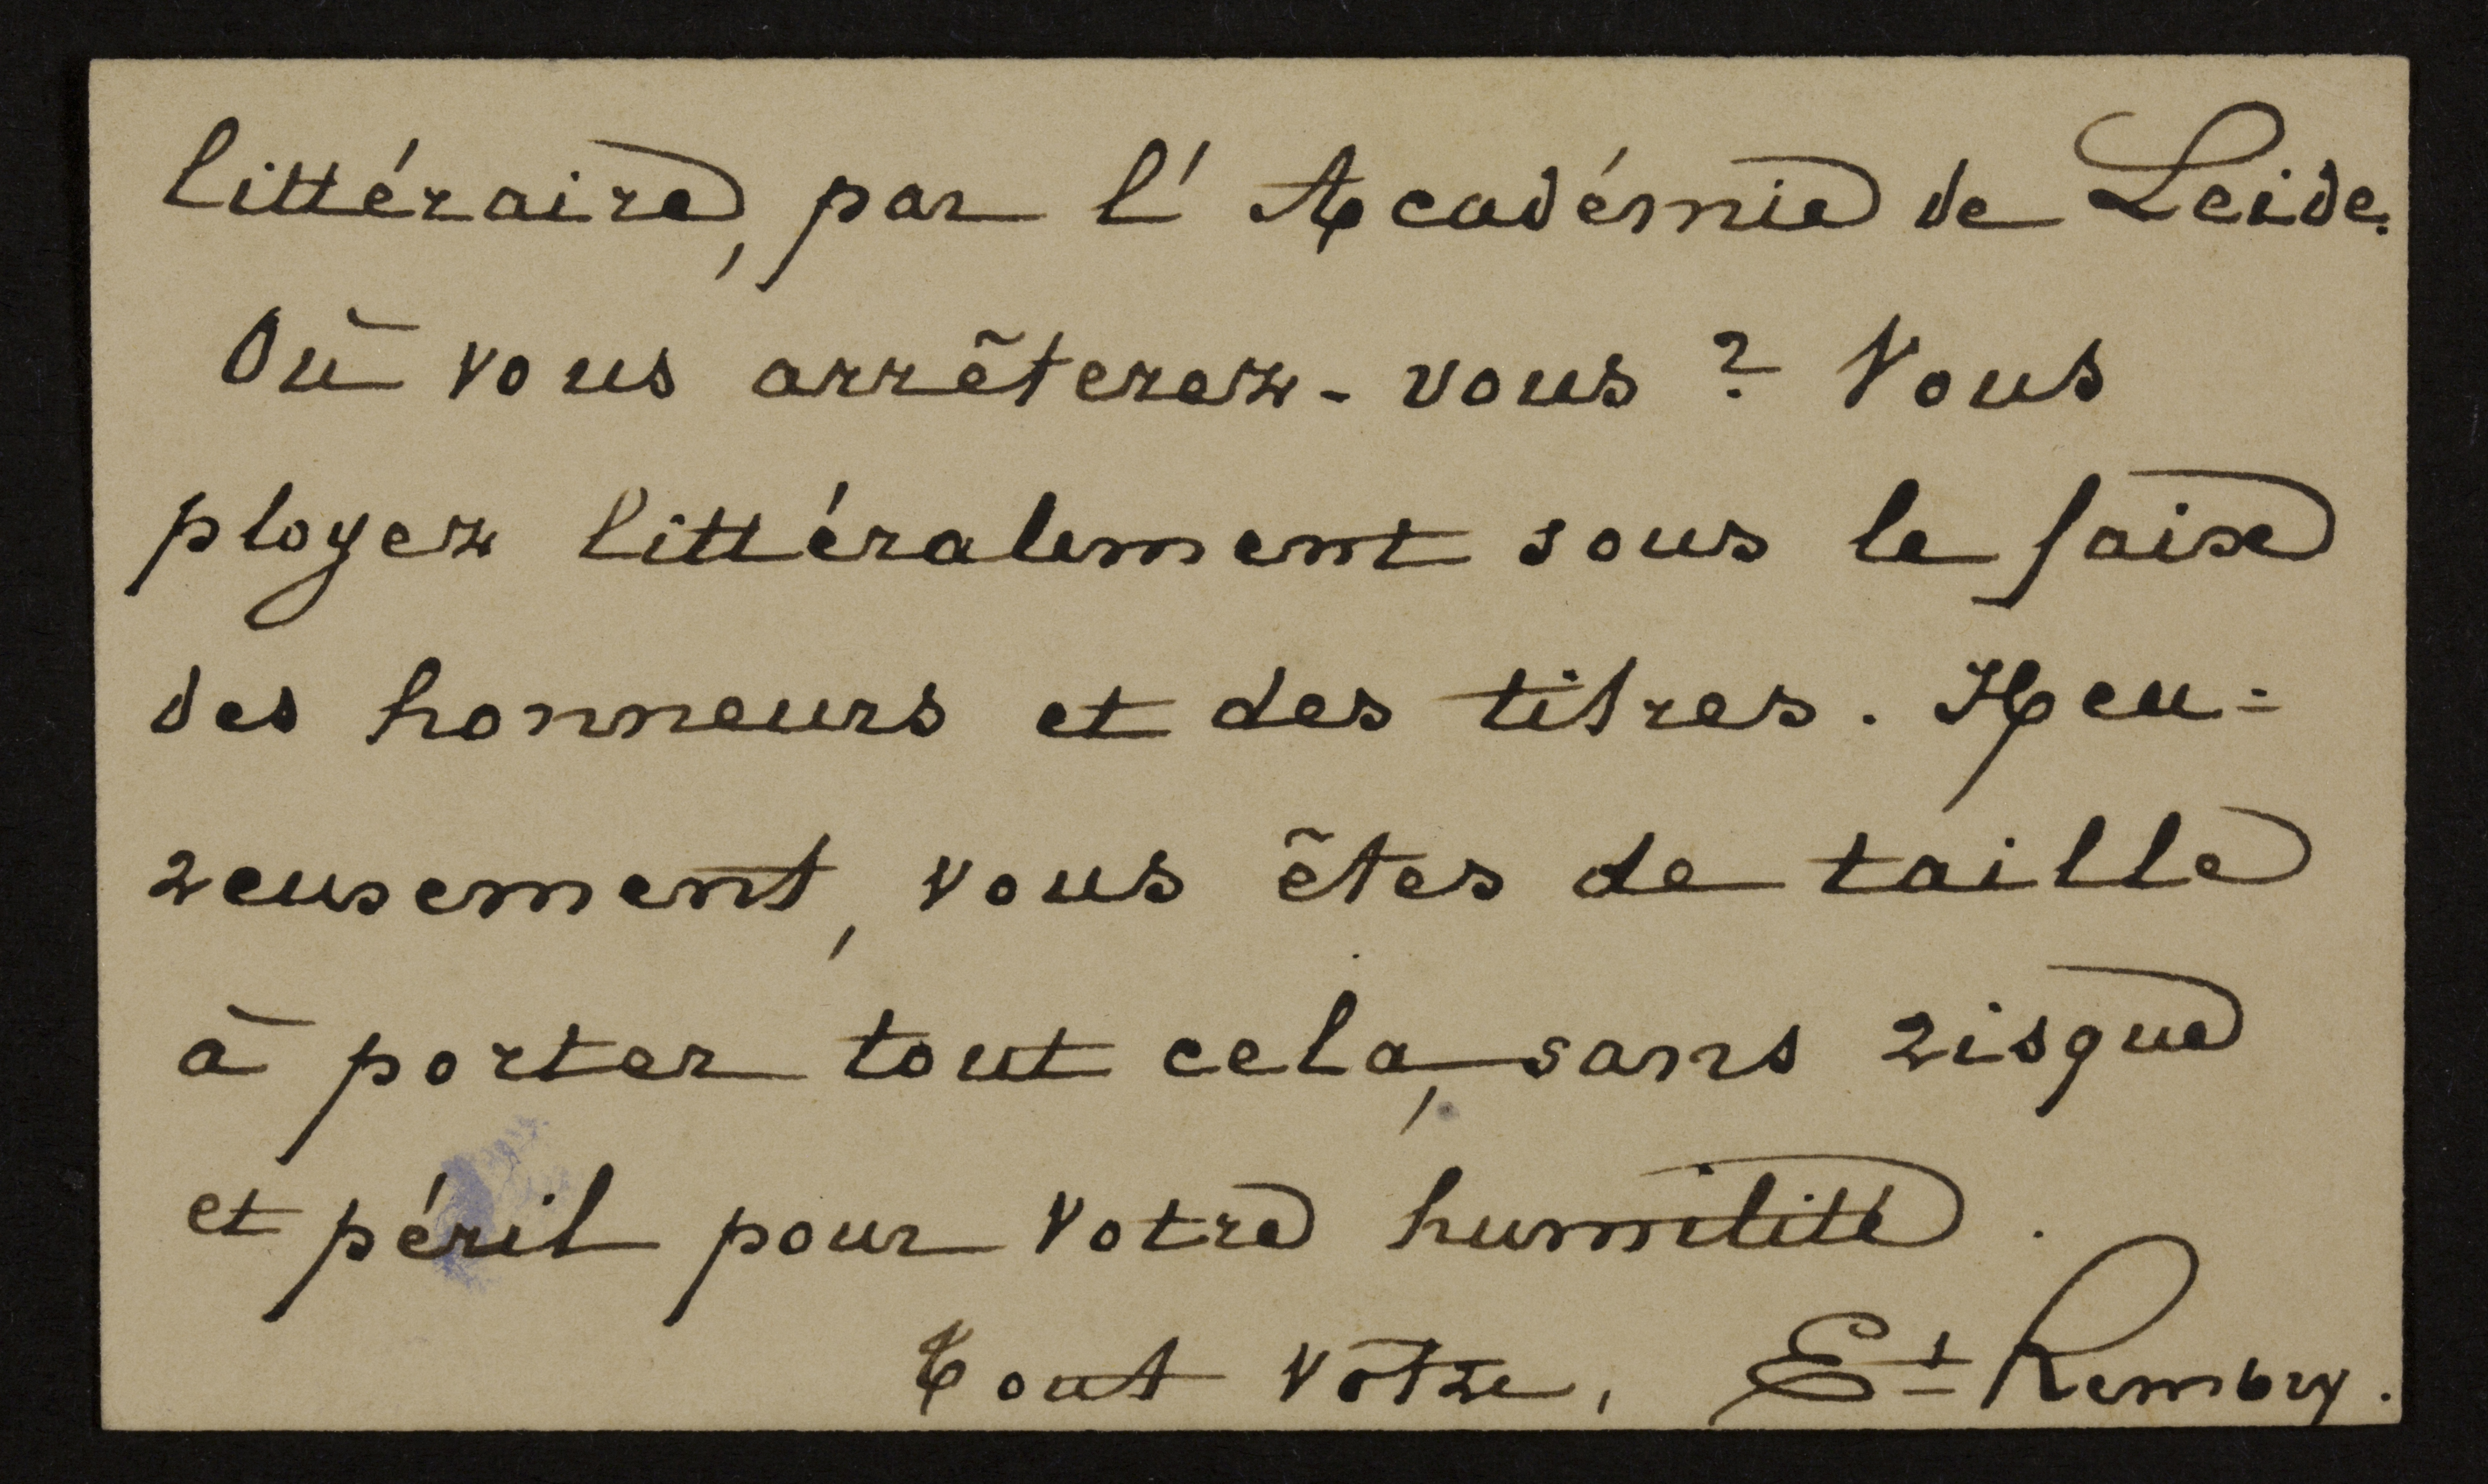 littéraire, par l'Académie de Leide.
Où vous arrêterez-vous ? Vous
ployez littéralement sous le faix
des honneurs et des titres. Heu=
reusement, vous êtes de taille
à porter tout cela, sans risque
et péril pour votre humilité.
Tout vôtre, Et Rembry.